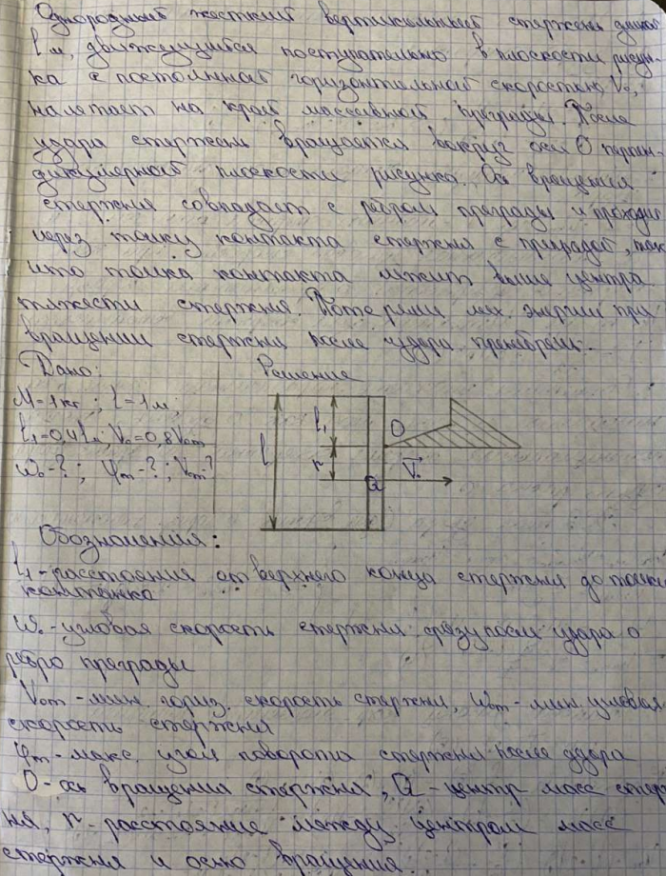 Однородный жесткий вертикальный стержень длиной
l м, движущийся поступательно в плоскости рисун-
ка с постоянной горизонтальной скоростью V₀,
налетает на край массивной преграды. После
удара стержень вращается вокруг оси О перпен-
дикулярной плоскости рисунка. Ось вращения
стержня совпадает с ребром преграды и проходит
через точку контакта стержня с преградой, так
что точка контакта лежит выше центра
тяжести стержня. Потерями мех. энергии при
вращении стержня после удара пренебречь.
Дано:
M=1кг; l=1м;
l₁=0,4l м, V₀=0,8V₀m
ω₀-?; φm-?; V₀m-?
Решение
l
l₁
r
O
a
V₀
Обозначения:
l₁-расстояния от верхнего конца стержня до точки
контакта
ω₀-угловая скорость стержня сразу после удара о
ребро преграды
V₀m-мин. гориз. скорость стержня, ω₀m-мин. угловая
скорость стержня
φm-макс. угол поворота стержня после удара
О-ось вращения стержня, a-центр масс стерж
ня, r-расстояние между центром масс
стержня и осью вращения.